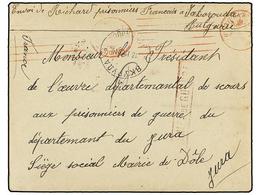 Envoi de Richard prisonnier Français à
Bulgarie
France
Monsieur le Président
de l'œuvre départemental de secours
aux prisonniers de guerre du
département du Jura
Siège social Mairie de Dôle
Jura